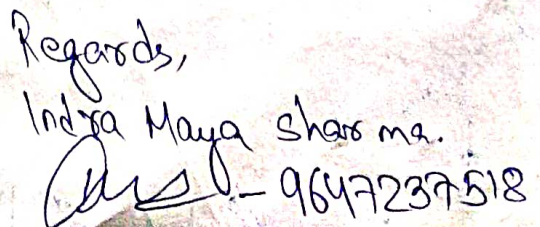 Regards,
Indra Maya Sharma.
- 9647237518